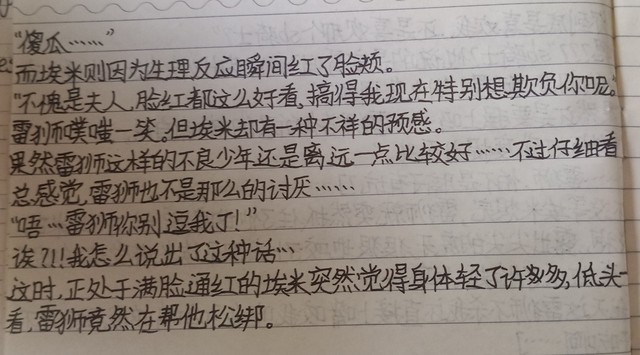 “傻瓜……”
而埃米则因为生理反应瞬间红了脸颊。
“不愧是夫人,脸红都这么好看,搞得我现在特别想欺负你呢。”
雷狮噗嗤一笑。但埃米却有一种不祥的预感。
果然雷狮这样的不良少年还是离远一点比较好……不过仔细看
总感觉,雷狮也不是那么的讨厌……
“唔…雷狮你别逗我了!”
诶?!!我怎么说出了这种话…
这时,正处于满脸通红的埃米突然觉得身体轻了许多,低头一
看,雷狮竟然在帮他松绑。